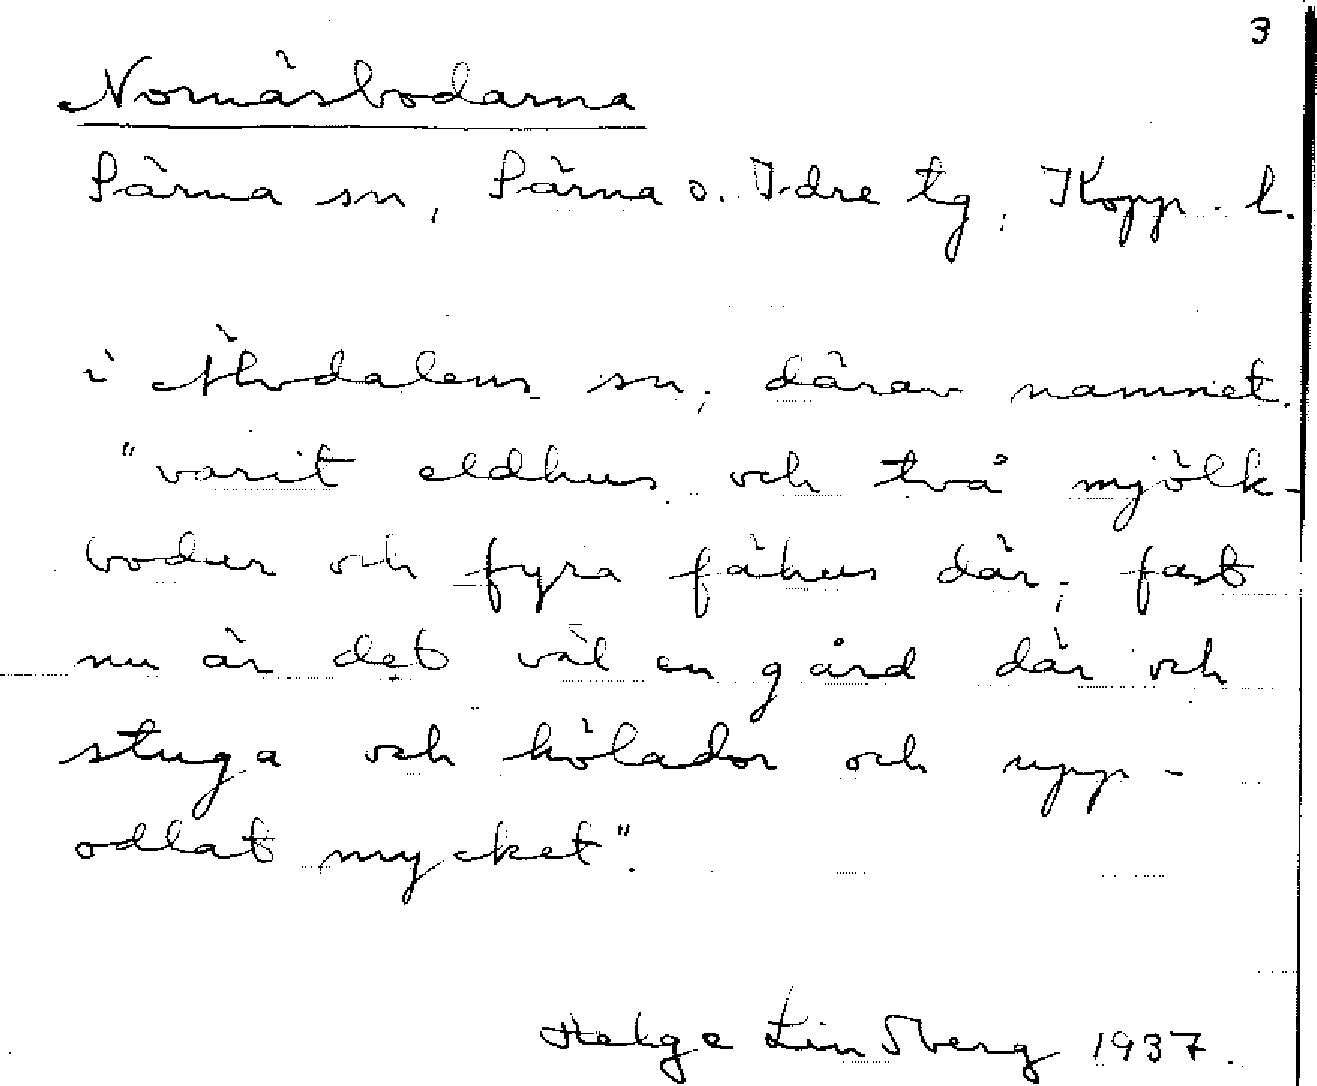 3
Nornäsbodarna
Särna sn, Särna o. Idre tg, Kopp. l.
i Älvdalens sn, därav namnet.
"varit eldhus och två mjölk-
bodar och fyra fähus där, fast
nu är det väl en gård där och
stuga och hölador och upp-
odlat mycket".
Helge Lindberg 1937.